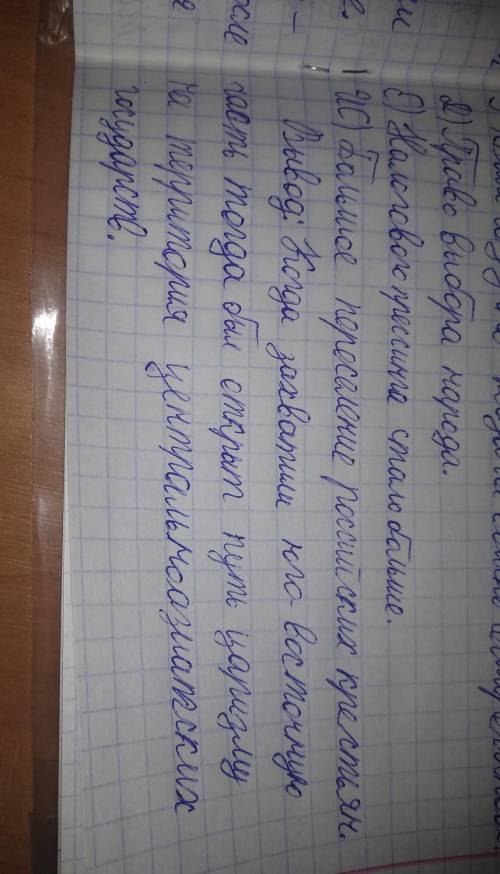 2) Право выбора народа.
5) Налогового прессинга стало больше.
ЧС) Большое переселение российских крестьян.
Вывод: Когда захватили юго-восточную
часть тогда был открыт путь царизму
на территория центральноазиатских
государств.